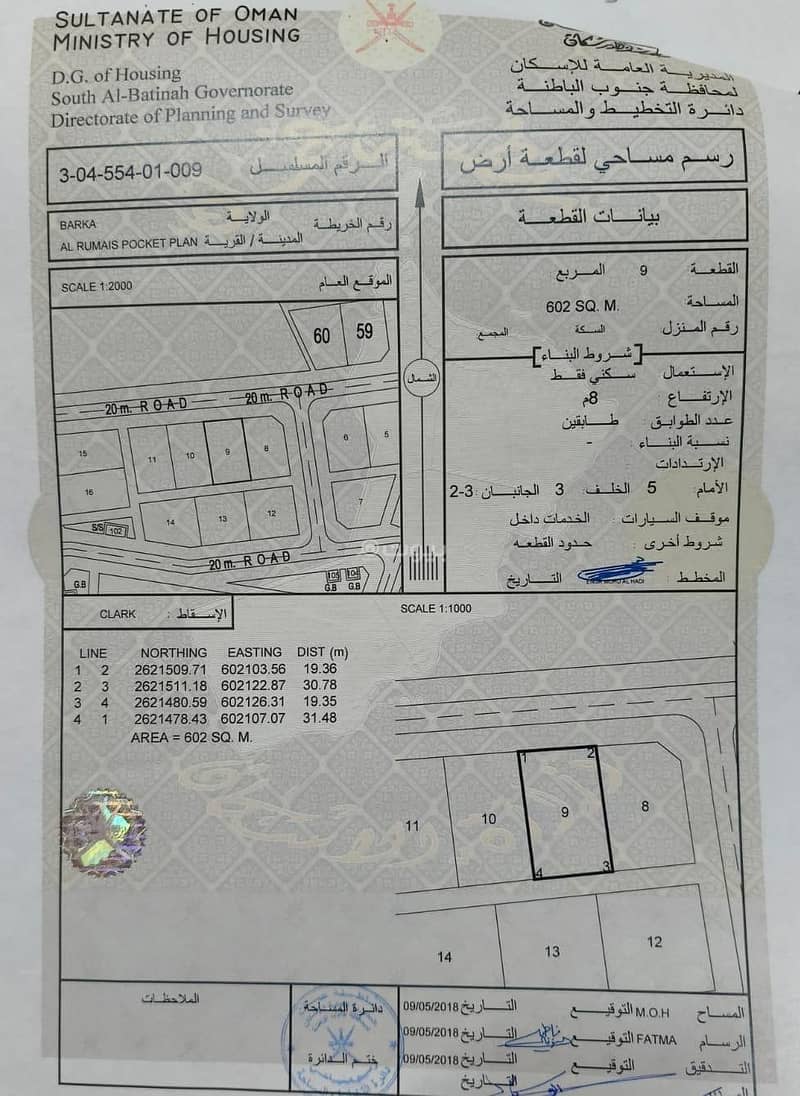 SULTANATE OF OMAN
MINISTRY OF HOUSING
D.G. of Housing
South Al-Batinah Governorate
Directorate of Planning and Survey
المديرية العامة للإسكان
لمحافظة جنوب الباطنة
دائرة التخطيط والمساحة
3-04-554-01-009 الرقم المسلسل
رسم مساحي لقطعة أرض
BARKA الولاية
AL RUMAIS POCKET PLAN المدينة / القرية
رقم الخريطة
بيانات القطعة
SCALE 1:2000 الموقع العام
القطعة 9 المربع
المساحة 602 SQ. M.
رقم المنزل السكة المجمع
شروط البناء
الإستعمال سكني فقط
الإرتفاع : 8م
عدد الطوابق : طابقين
نسبة البناء : -
الإرتدادات
الأمام: 5 الخلف: 3 الجانبان: 2-3
موقف السيارات : الخدمات داخل
شروط أخرى : حدود القطعه
المخطط : التاريخ
60 59
20 m. ROAD 20 m. ROAD
15 11 10 9 8 6 5
16 14 13 12 7
S/S 102
20 m. ROAD
G.B 105 104
G.B G.B
الشمال
CLARK الإسقاط :
SCALE 1:1000
LINE NORTHING EASTING DIST (m)
1 2 2621509.71 602103.56 19.36
2 3 2621511.18 602122.87 30.78
3 4 2621480.59 602126.31 19.35
4 1 2621478.43 602107.07 31.48
AREA = 602 SQ. M.
1 2
11 10 9 8
4 3
14 13 12
الملاحظات
دائرة المساحة
ختم الدائرة
المساح M.O.H التوقيع التاريخ 09/05/2018
الرسام FATMA التوقيع التاريخ 09/05/2018
التدقيق التوقيع التاريخ 09/05/2018
التاريخ